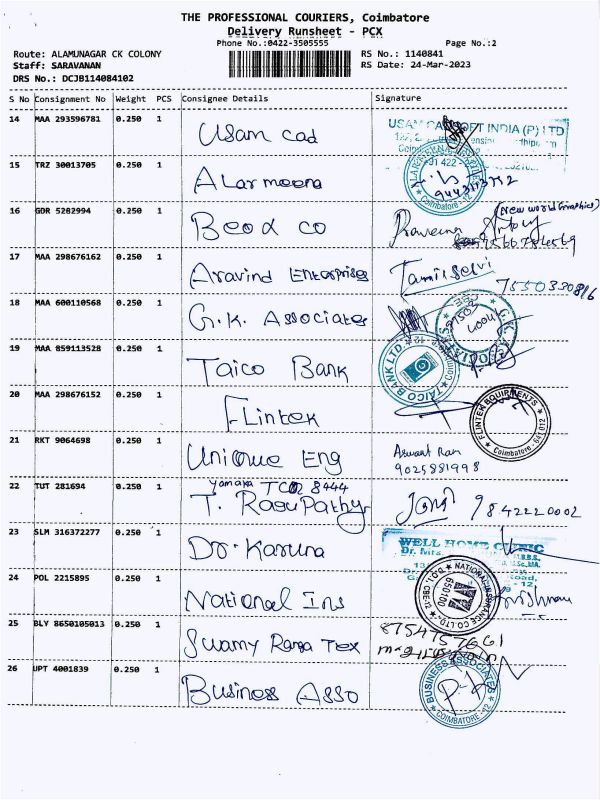 THE PROFESSIONAL COURIERS, Coimbatore
Delivery Runsheet - PCX
Phone No.:0422-3505555 Page No.:2
Route: ALAMUNAGAR CK COLONY RS No.: 1140841
Staff: SARAVANAN RS Date: 24-Mar-2023
DRS No.: DCJB114084102
S No Consignment No Weight PCS Consignee Details Signature
14 MAA 293596781 0.250 1 Usam Cad
USAM INDIA (P) LTD
15 TRZ 30013705 0.250 1 Alarmeena
Coimbatore - 12
16 GDR 5282994 0.250 1 Beod co Praveena
(New world Graphics)
17 MAA 298676162 0.250 1 Aravind Enterprises Tamil Selvi
7550330816
18 MAA 600110568 0.250 1 G.K. Associates
19 MAA 859113528 0.250 1 Taico Bank
TAICO BANK LTD.
20 MAA 298676152 0.250 1 Flintek
FLINTEK EQUIPMENTS
Coimbatore - 641 012
21 RKT 9064698 0.250 1 Unique Eng
9025881998
22 TUT 281694 0.250 1 T. Ragupathy 9842220002
23 SLM 316372277 0.250 1 Dr. Karuna
WELL HOME CLINIC
Dr. Mrs.
24 POL 2215895 0.250 1 National Ins
NATIONAL INSURANCE CO LTD.
650100
25 BLY 8650105013 0.250 1 Swamy Raga Tex
8754757661
26 UPT 4001839 0.250 1 Business Asso
BUSINESS ASSOCIATES
COIMBATORE - 12